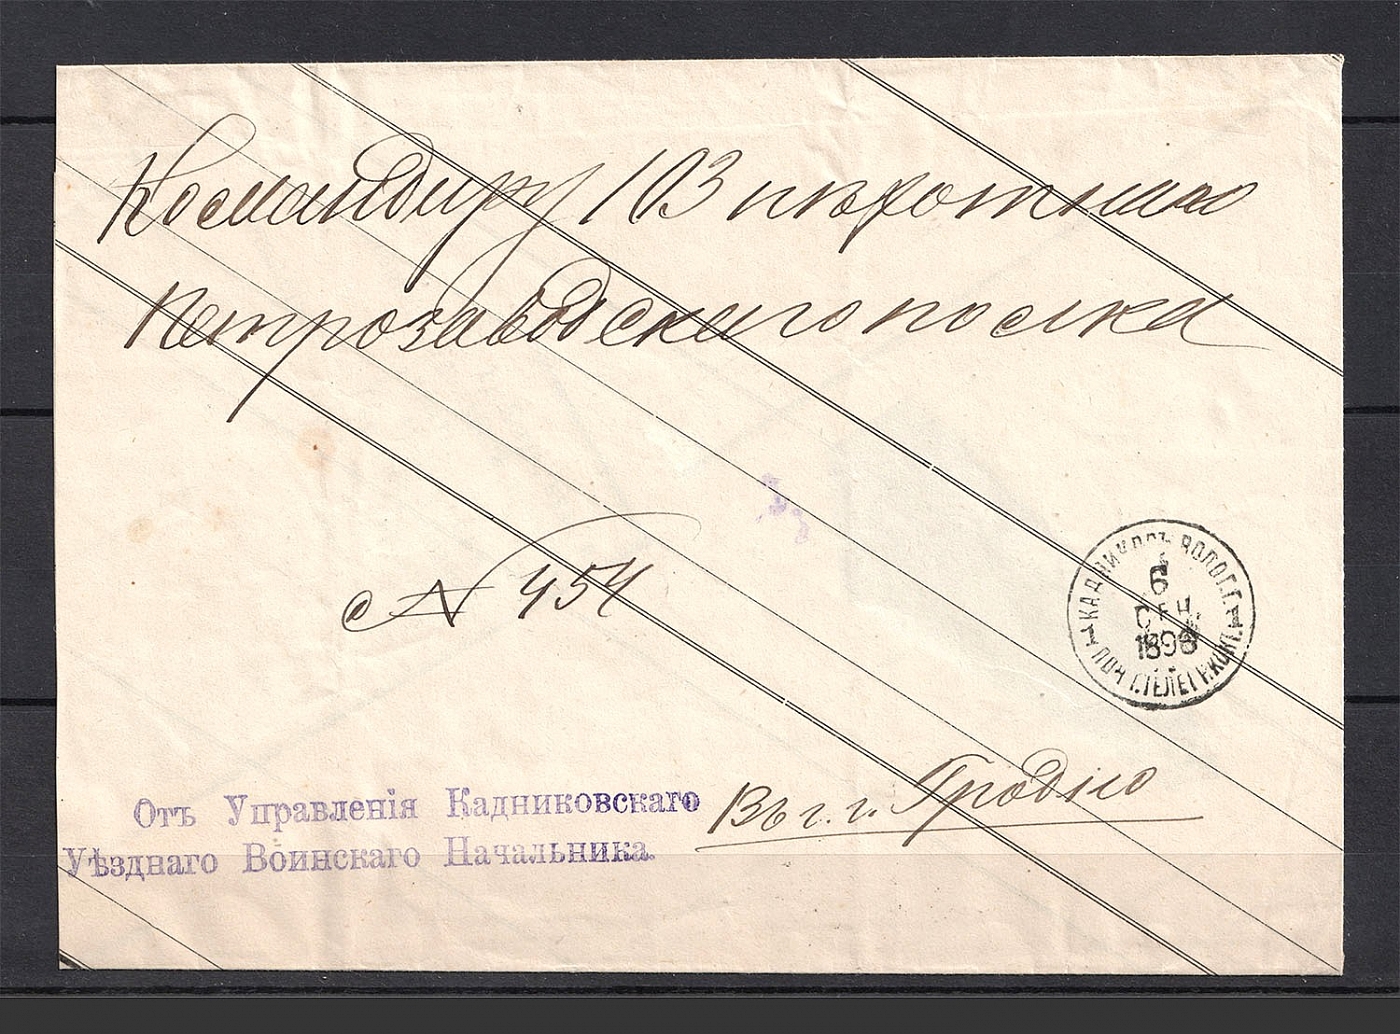 Командиру 103 пѣхотнаго
Петрозаводскаго полка
с № 454
КАДНИКОВЪ ВОЛОГ. Г.
6
СЕН.
1898
1 ПОЧТ. ТЕЛЕГР. КОНТ. 1
Въ г. г. Гродно
Отъ Управленія Кадниковскаго
Уѣзднаго Воинскаго Начальника.